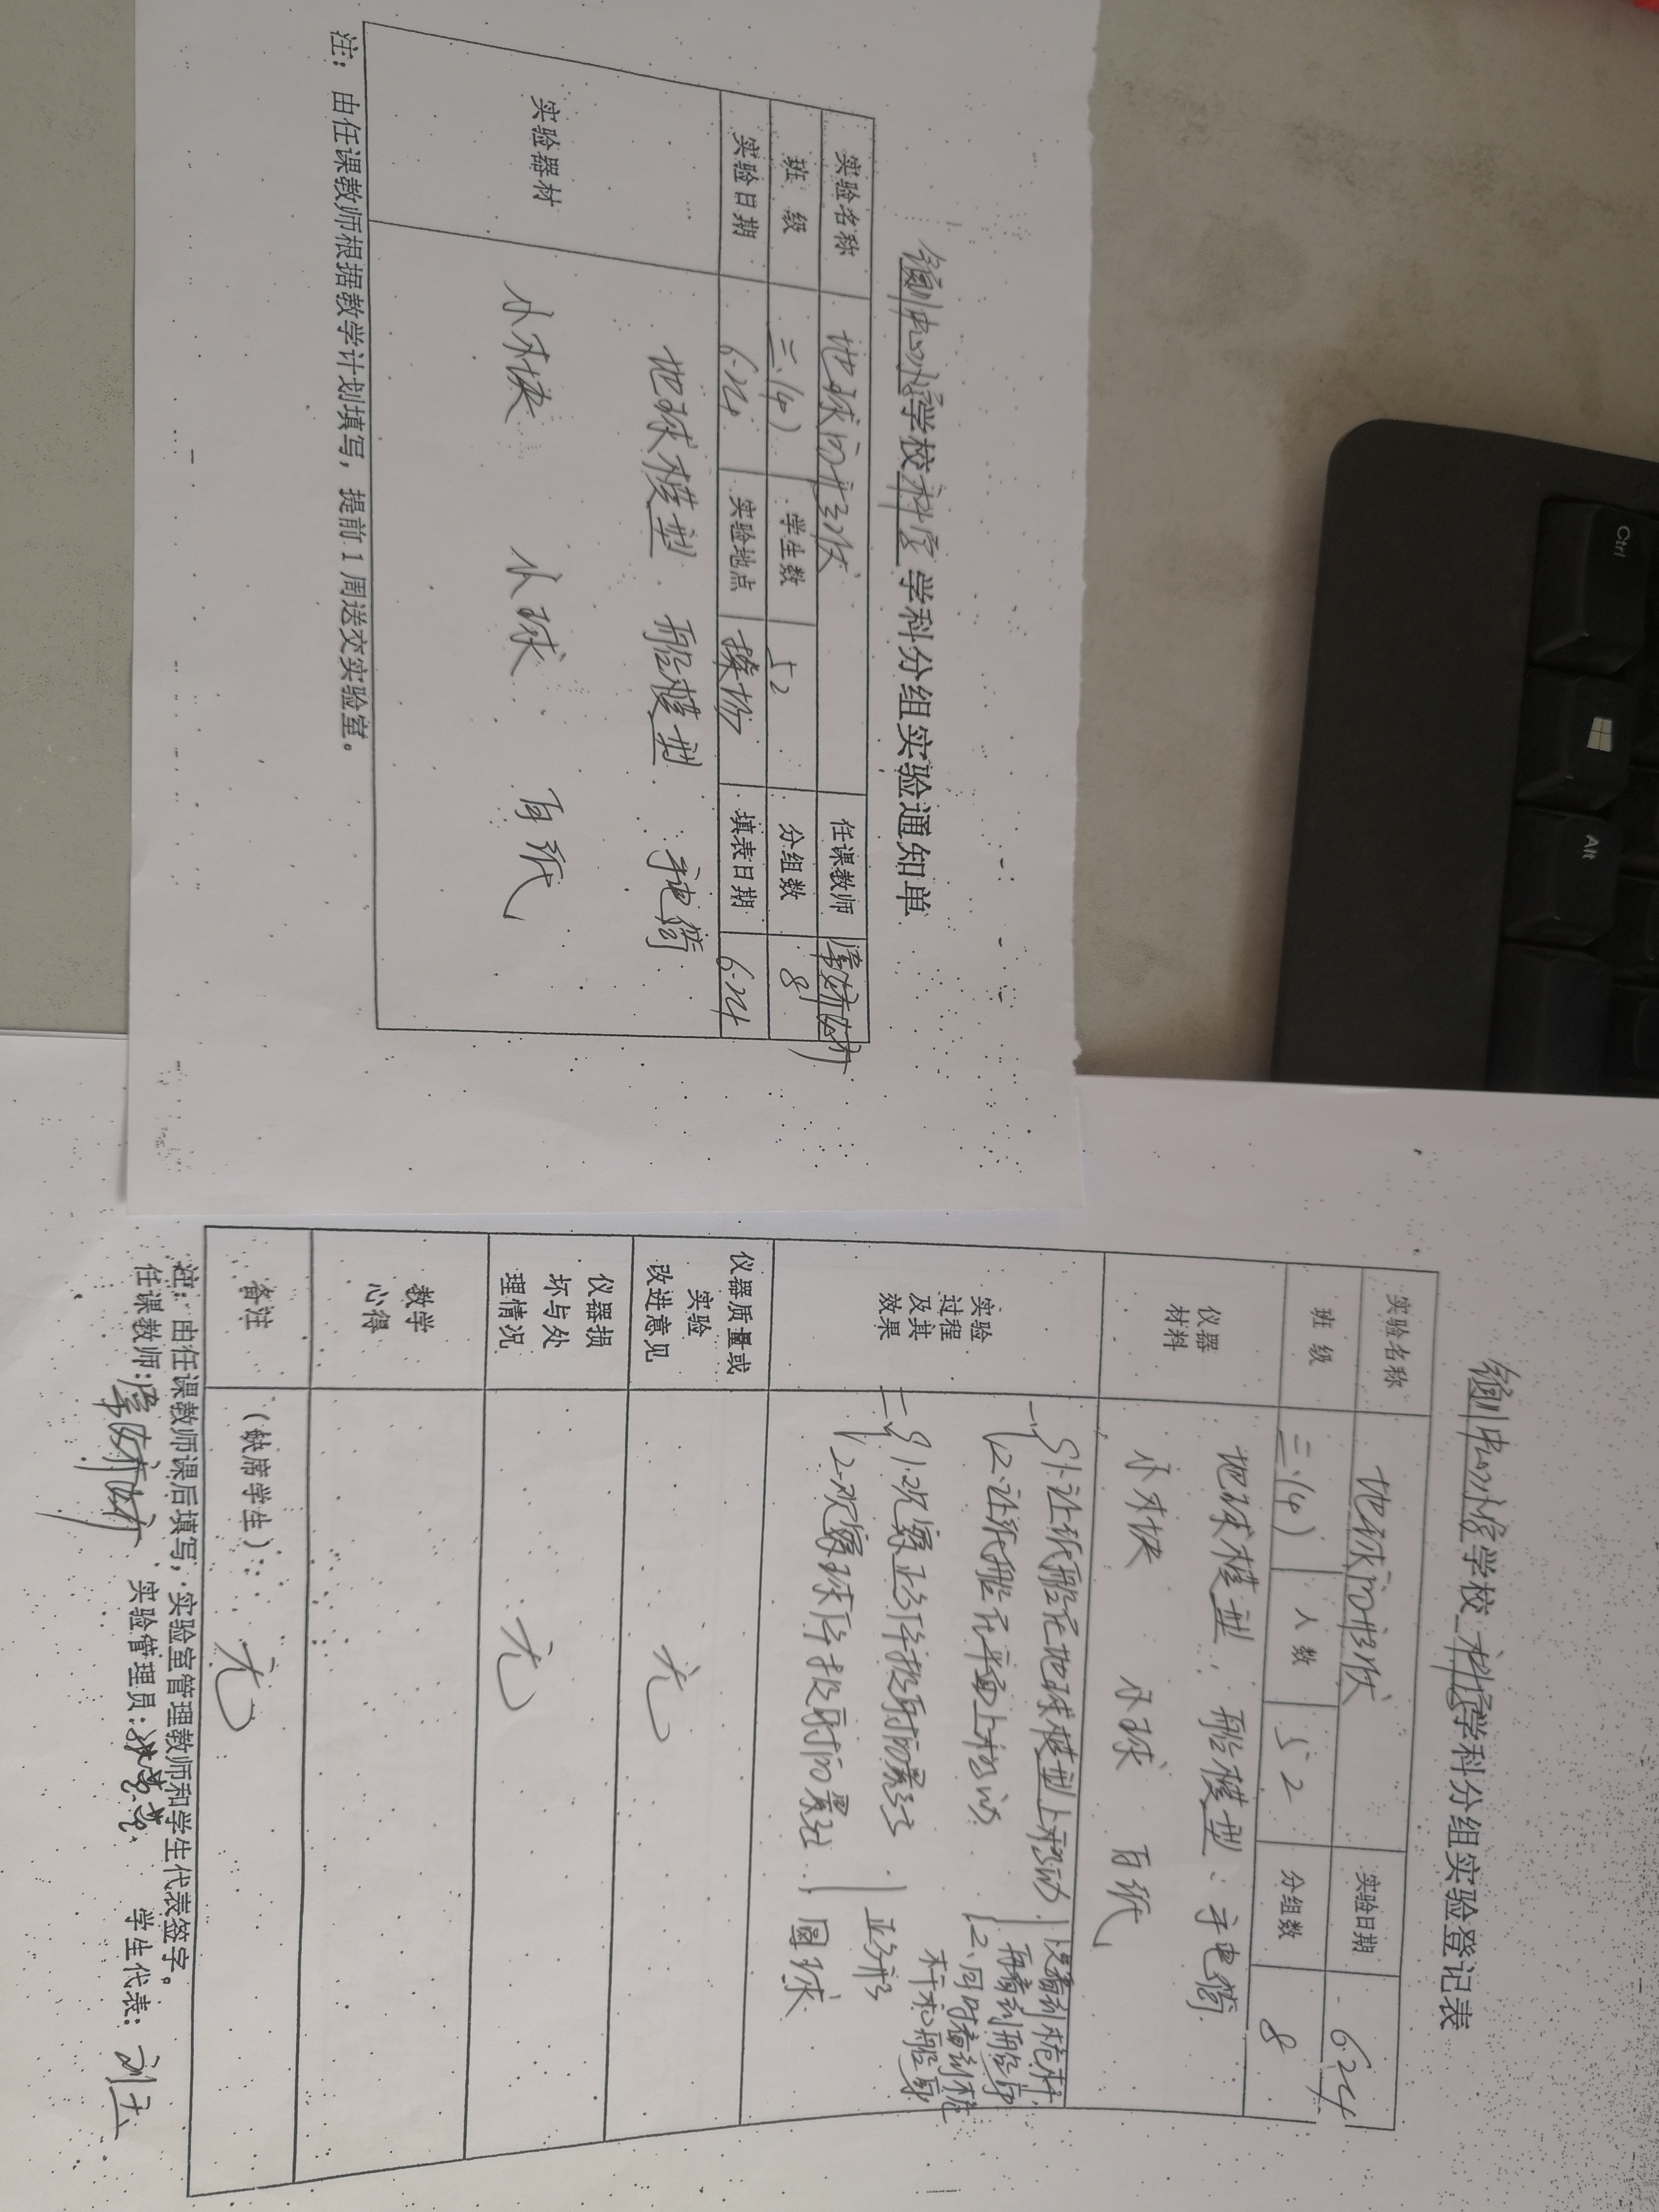 中心小学学校 科学 学科分组实验通知单
实验名称 地球的形状 任课教师
班 级 三.(4) 学生数 52 分组数 8
实验日期 6.24 实验地点 操场 填表日期 6.24
实验器材 地球模型 船模型 手电筒
小木块 小球 白纸
注：由任课教师根据教学计划填写，提前1周送交实验室。
中心小学学校 科学 学科分组实验登记表
实验名称 地球的形状 实验日期 6.24
班 级 三.(4) 人数 52 分组数 8
仪器材料 地球模型 船模型 手电筒
小木块 小球 白纸
实验过程及其效果
一、1.让纸船在地球模型上移动 1.先看到桅杆,再看到船身
2.让纸船在平面上移动 2.同时看到桅杆和船身
二、1.观察正方体投射的影子 正方形
2.观察球体投射的影子 圆球
仪器质量或实验改进意见 无
仪器损坏与处理情况 无
教学心得
备注 （缺席学生）： 无
注：由任课教师课后填写，实验室管理教师和学生代表签字。
任课教师： 实验管理员： 学生代表：
Ctrl
Alt